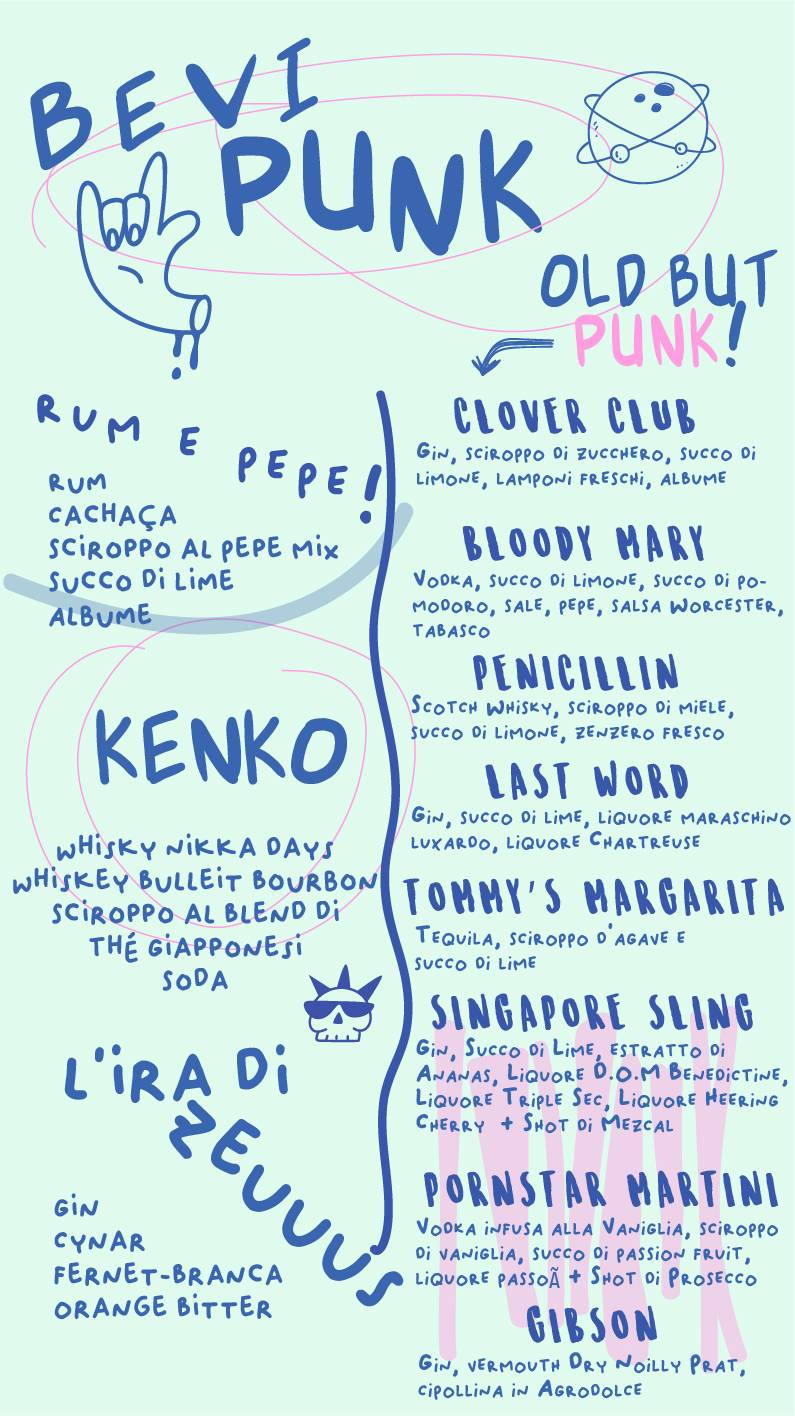 BEVI
PUNK
OLD BUT
PUNK!
RUM E PEPE!
RUM
CACHAÇA
SCIROPPO AL PEPE MIX
SUCCO DI LIME
ALBUME
KENKO
WHISKY NIKKA DAYS
WHISKEY BULLEIT BOURBON
SCIROPPO AL BLEND DI
THÉ GIAPPONESI
SODA
L'IRA DI
ZEUUUS
GIN
CYNAR
FERNET-BRANCA
ORANGE BITTER
CLOVER CLUB
GIN, SCIROPPO DI ZUCCHERO, SUCCO DI
LIMONE, LAMPONI FRESCHI, ALBUME
BLOODY MARY
VODKA, SUCCO DI LIMONE, SUCCO DI PO-
MODORO, SALE, PEPE, SALSA WORCESTER,
TABASCO
PENICILLIN
SCOTCH WHISKY, SCIROPPO DI MIELE,
SUCCO DI LIMONE, ZENZERO FRESCO
LAST WORD
GIN, SUCCO DI LIME, LIQUORE MARASCHINO
LUXARDO, LIQUORE CHARTREUSE
TOMMY'S MARGARITA
TEQUILA, SCIROPPO D'AGAVE E
SUCCO DI LIME
SINGAPORE SLING
GIN, SUCCO DI LIME, ESTRATTO DI
ANANAS, LIQUORE D.O.M BENEDICTINE,
LIQUORE TRIPLE SEC, LIQUORE HEERING
CHERRY + SHOT DI MEZCAL
PORNSTAR MARTINI
VODKA INFUSA ALLA VANIGLIA, SCIROPPO
DI VANIGLIA, SUCCO DI PASSION FRUIT,
LIQUORE PASSOÃ + SHOT DI PROSECCO
GIBSON
GIN, VERMOUTH DRY NOILLY PRAT,
CIPOLLINA IN AGRODOLCE